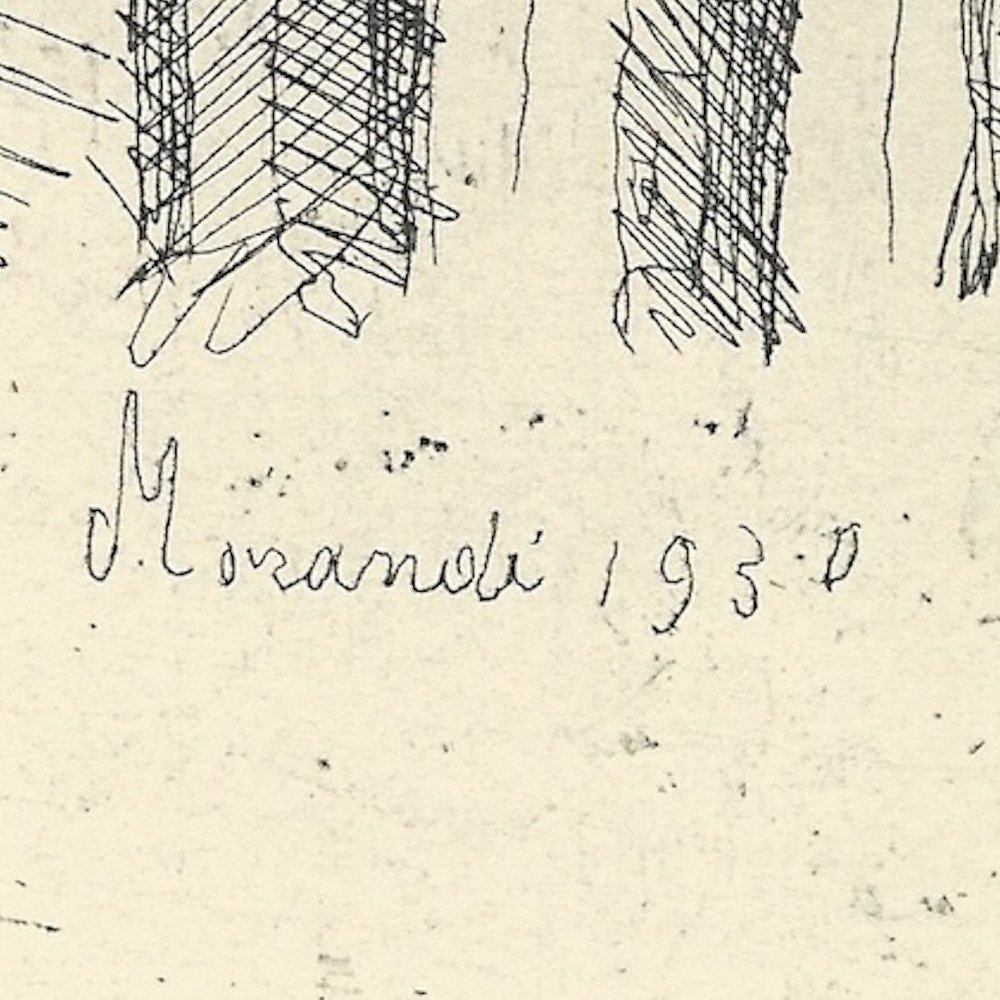 Morandi 1930